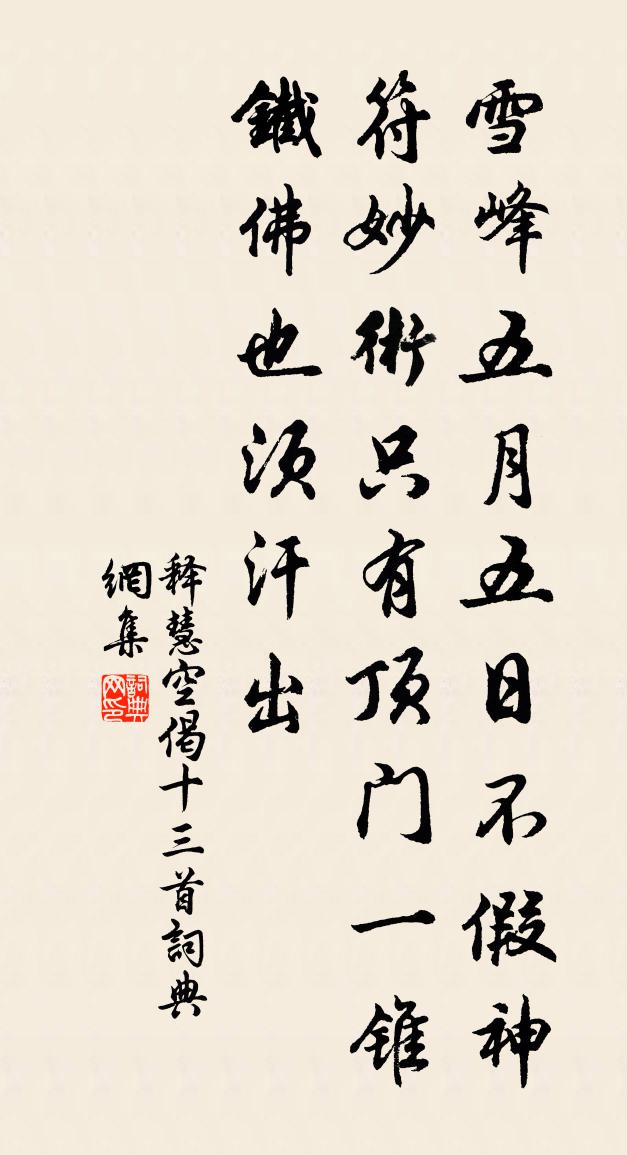 雪峰五月五日不假神
符妙術只有顶门一锥
鐵佛也须汗出
释慧空偈十三首詞典
網集
詞典
网印